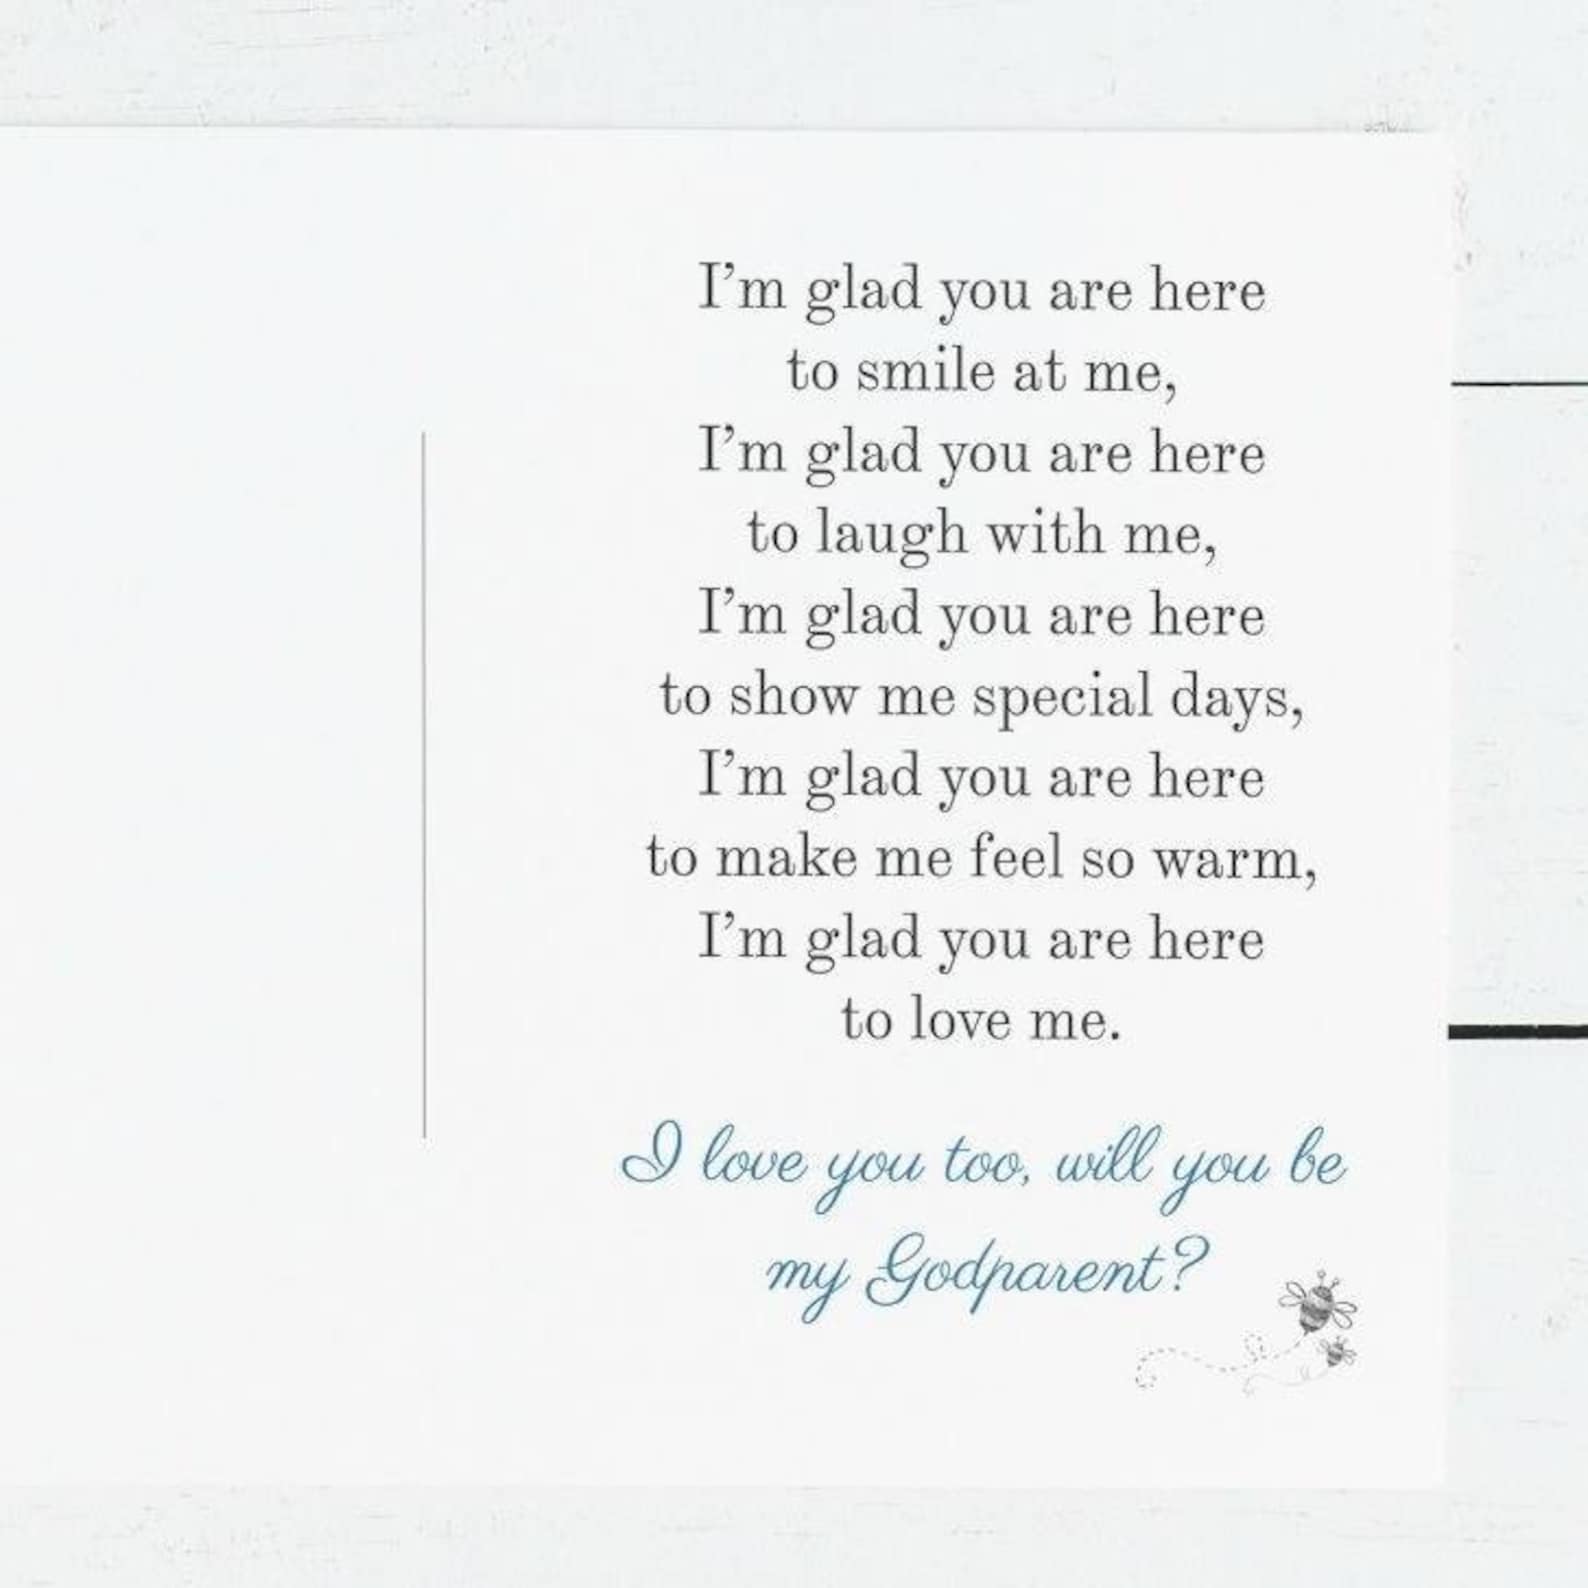 I’m glad you are here
to smile at me,
I’m glad you are here
to laugh with me,
I’m glad you are here
to show me special days,
I’m glad you are here
to make me feel so warm,
I’m glad you are here
to love me.
I love you too, will you be
my Godparent?